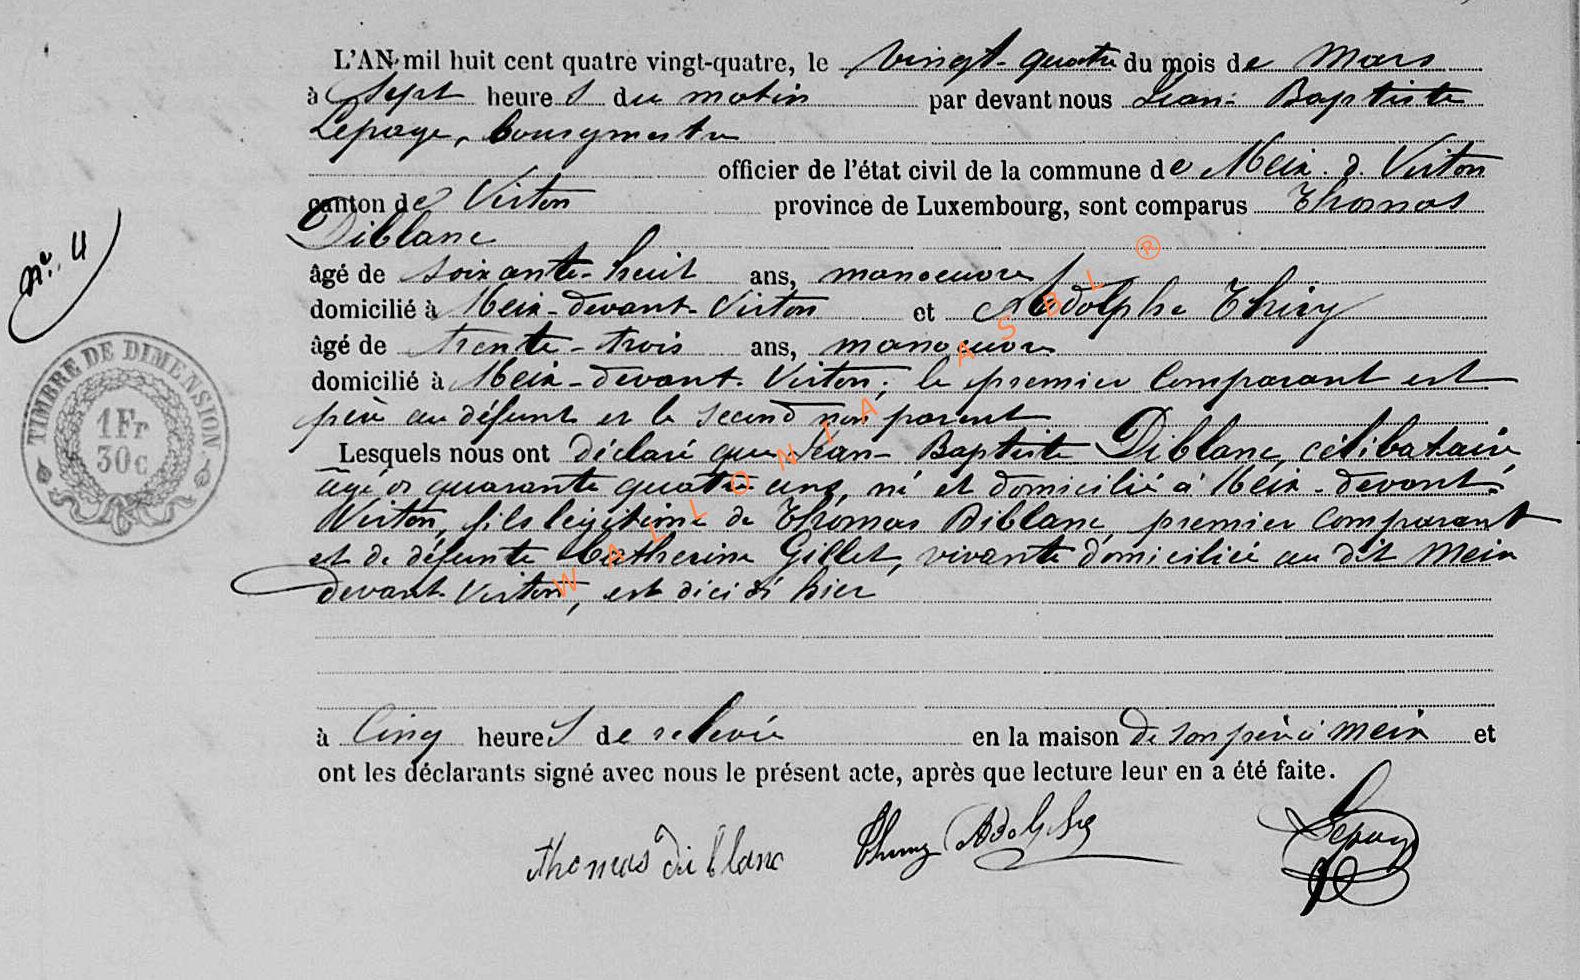 L'AN mil huit cent quatre vingt-quatre, le vingt-quatre du mois de Mars
à sept heures du matin par devant nous Jean-Baptiste
Lepage, bourgmestre
officier de l'état civil de la commune de Meix-d-Virton
canton de Virton province de Luxembourg, sont comparus Thomas
Diblanc
âgé de soixante-huit ans, manoeuvre
domicilié à Meix-devant-Virton et Adolphe Thiry
âgé de trente-trois ans, manoeuvre
domicilié à Meix-devant-Virton; le premier Comparant est
père au défunt et le second non parent
Lesquels nous ont déclaré que Jean-Baptiste Diblanc, célibataire
âgé de quarante quatre ans, né et domicilié à Meix-devant-
Virton, fils légitime de Thomas Diblanc premier Comparant
et de défunte Catherine Gillet, vivante domiciliée au dit Meix
devant Virton, est décédé hier
à Cinq heures de relevée en la maison de son père à Meix et
ont les déclarants signé avec nous le présent acte, après que lecture leur en a été faite.
thomas diblanc Thiry Adolphe Lepage
N° 4
TIMBRE DE DIMENSION
1Fr
30c
WALLONIA ASBL ®